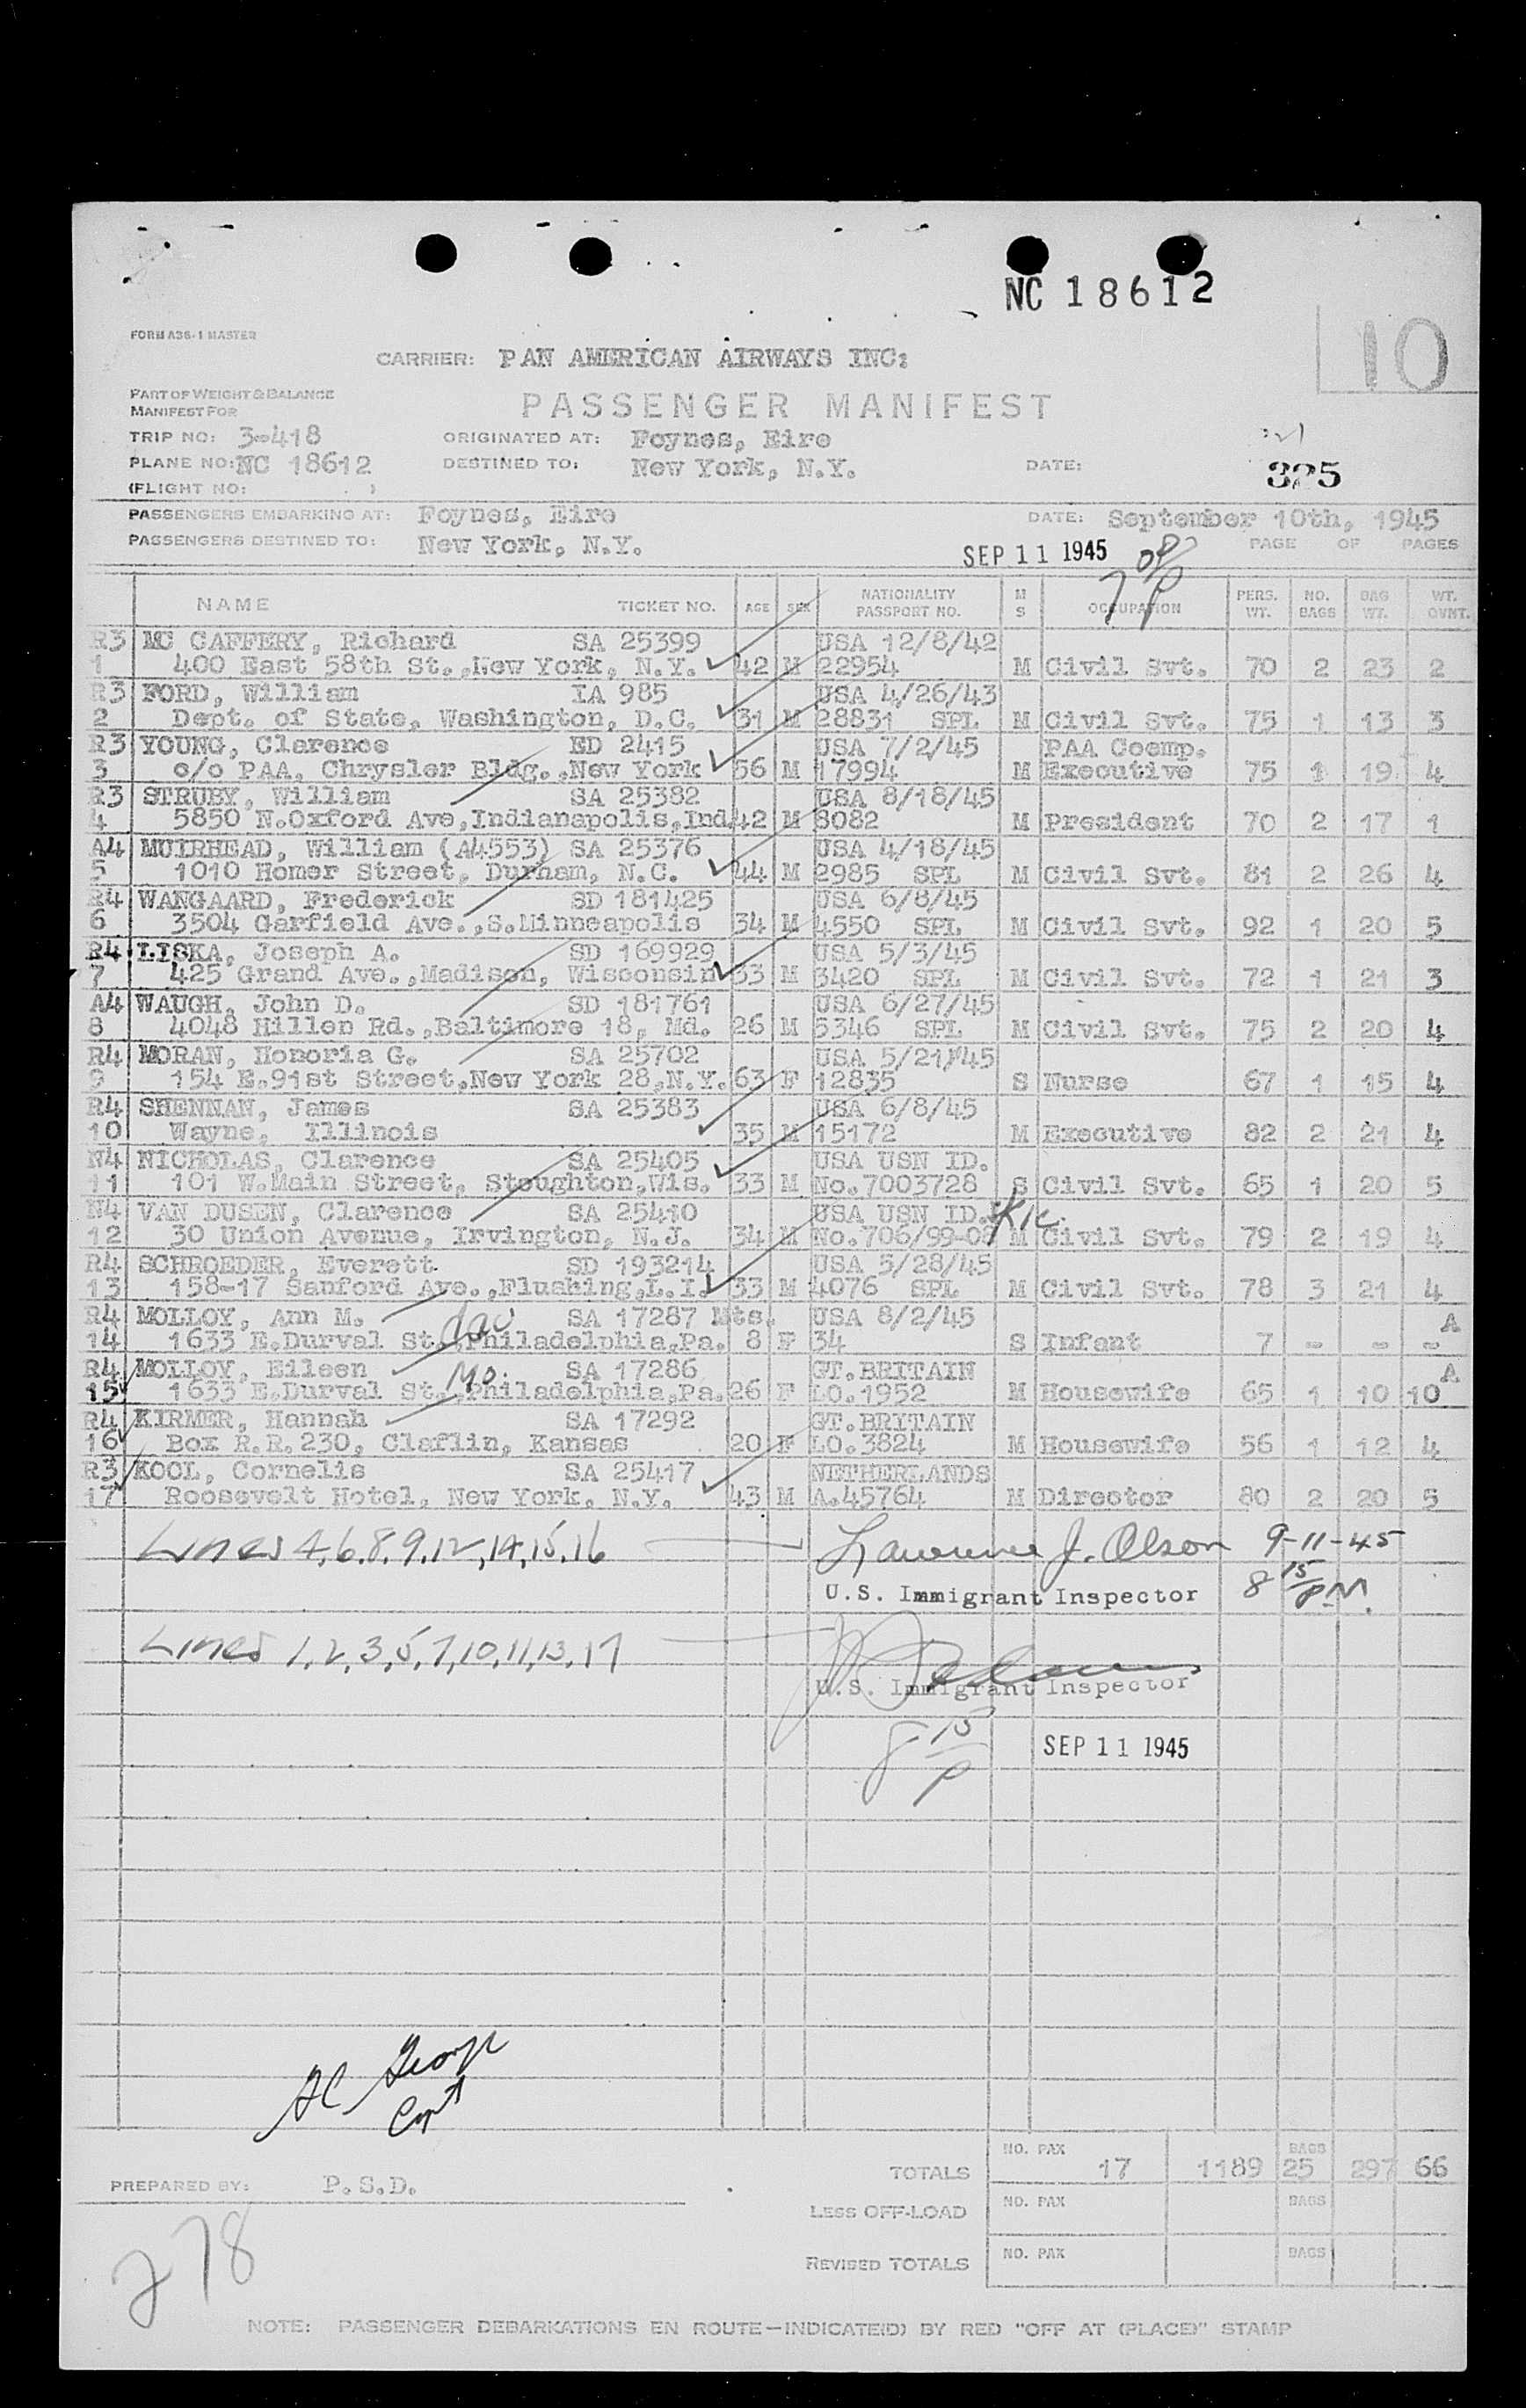 NC 18612
FORM A36-1 MASTER
10
CARRIER: PAN AMERICAN AIRWAYS INC:
PART OF WEIGHT & BALANCE
MANIFEST FOR
PASSENGER MANIFEST
TRIP NO: 3-418 ORIGINATED AT: Foynes, Eire
PLANE NO: NC 18612 DESTINED TO: New York, N.Y. DATE: 325
(FLIGHT NO: )
PASSENGERS EMBARKING AT: Foynes, Eire DATE: September 10th, 1945
PASSENGERS DESTINED TO: New York, N.Y. SEP 11 1945 PAGE OF PAGES
NAME TICKET NO. AGE SEX NATIONALITY PASSPORT NO. M S OCCUPATION PERS. WT. NO. BAGS BAG WT. WT. OVNT.
R3 MC CAFFERY, Richard SA 25399 USA 12/8/42
1 400 East 58th St.,New York, N.Y. 42 M 22954 M Civil Svt. 70 2 23 2
R3 FORD, William IA 985 USA 4/26/43
2 Dept. of State, Washington, D.C. 31 M 28831 SPL M Civil Svt. 75 1 13 3
R3 YOUNG, Clarence ED 2415 USA 7/2/45 PAA Coomp.
3 c/o PAA, Chrysler Bldg.,New York 56 M 17994 M Executive 75 1 19 4
R3 STRUBY, William SA 25382 USA 8/18/45
4 5850 N.Oxford Ave,Indianapolis,Ind. 42 M 8082 M President 70 2 17 1
A4 MUIRHEAD, William (A4553) SA 25376 USA 4/18/45
5 1010 Homer Street, Durham, N.C. 44 M 2985 SPL M Civil Svt. 81 2 26 4
R4 WANGAARD, Frederick SD 181425 USA 6/8/45
6 3504 Garfield Ave.,S.Minneapolis 34 M 4550 SPL M Civil Svt. 92 1 20 5
R4 LISKA, Joseph A. SD 169929 USA 5/3/45
7 425 Grand Ave.,Madison, Wisconsin 33 M 3420 SPL M Civil Svt. 72 1 21 3
A4 WAUGH, John D. SD 181761 USA 6/27/45
8 4048 Hillen Rd.,Baltimore 18, Md. 26 M 5346 SPL M Civil Svt. 75 2 20 4
R4 MORAN, Honoria G. SA 25702 USA 5/21/45
9 154 E.91st Street,New York 28,N.Y. 63 F 12835 S Nurse 67 1 15 4
R4 SHENNAN, James SA 25383 USA 6/8/45
10 Wayne, Illinois 35 M 15172 M Executive 82 2 21 4
N4 NICHOLAS, Clarence SA 25405 USA USN ID.
11 101 W.Main Street, Stoughton,Wis. 33 M No.7003728 S Civil Svt. 65 1 20 5
N4 VAN DUSEN, Clarence SA 25410 USA USN ID.
12 30 Union Avenue, Irvington, N.J. 34 M No.706/99-08 M Civil Svt. 79 2 19 4
R4 SCHROEDER, Everett SD 193214 USA 5/28/45
13 158-17 Sanford Ave.,Flushing,L.I. 33 M 4076 SPL M Civil Svt. 78 3 21 4
R4 MOLLOY, Ann M. SA 17287 Mts. USA 8/2/45 A
14 1633 E.Durval St.,Philadelphia,Pa. 8 F 34 S Infant 7 - - -
R4 MOLLOY, Eileen Mo. SA 17286 GT.BRITAIN A
15 1633 E.Durval St.,Philadelphia,Pa. 26 F LO.1952 M Housewife 65 1 10 10
R4 KIRMER, Hannah SA 17292 GT.BRITAIN
16 Box R.R.230, Claflin, Kansas 20 F LO.3824 M Housewife 56 1 12 4
R3 KOOL, Cornelis SA 25417 NETHERLANDS
17 Roosevelt Hotel, New York, N.Y. 43 M A.45764 M Director 80 2 20 5
Lines 4,6,8,9,12,14,15,16 Lawrence J. Olson 9-11-45
U.S. Immigrant Inspector 8 15/PM.
Lines 1,2,3,5,7,10,11,13,17
U.S. Immigrant Inspector
8 15/P SEP 11 1945
George
Capt
NO. PAX BAGS
TOTALS 17 1189 25 297 66
PREPARED BY: P.S.D.
LESS OFF-LOAD NO. PAX BAGS
REVISED TOTALS NO. PAX BAGS
278
NOTE: PASSENGER DEBARKATIONS EN ROUTE—INDICATE(D) BY RED "OFF AT (PLACE)" STAMP